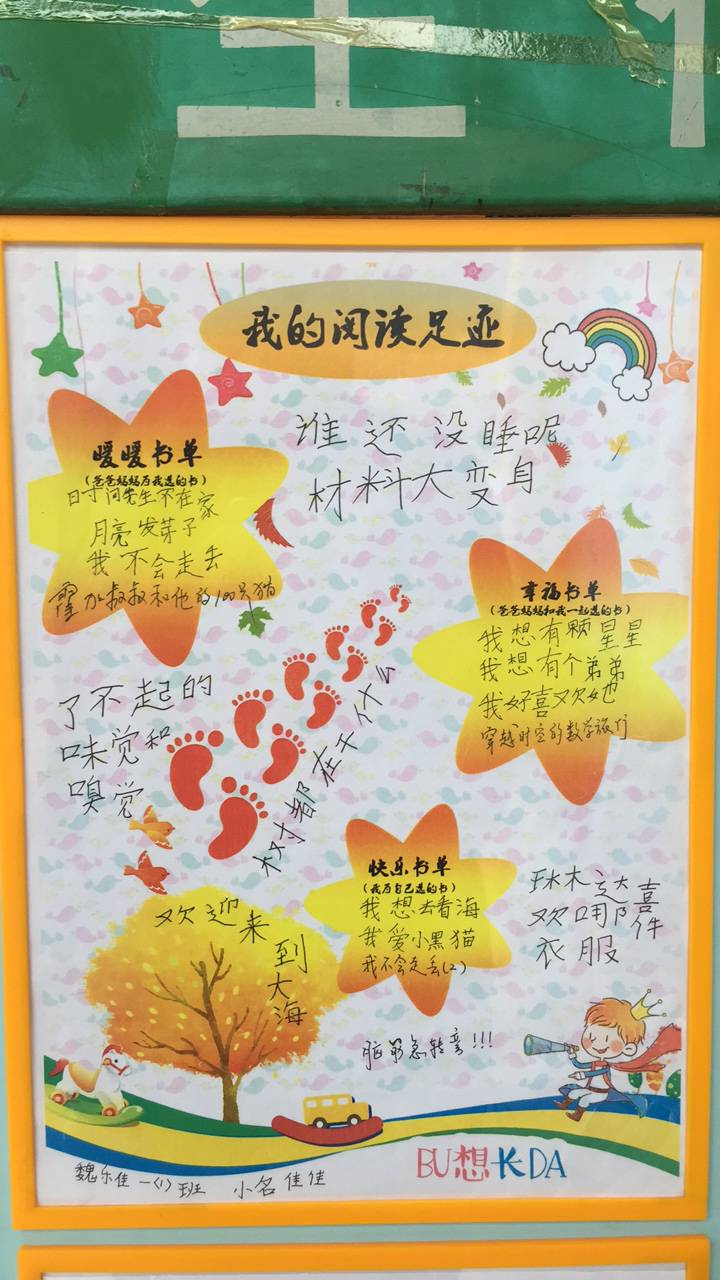 我的阅读足迹
谁还没睡呢
材料大变身
暖暖书单
(爸爸妈妈为我选的书)
时间先生不在家
月亮发芽子
我不会走丢
霍加叔叔和他的100只猫
幸福书单
(爸爸妈妈和我一起选的书)
我想有颗星星
我想有个弟弟
我好喜欢她
穿越时空的数学旅行
了不起的
味觉和
嗅觉
树都在干什么
快乐书单
(我为自己选的书)
我想去看海
我爱小黑猫
我不会走丢(2)
琳达喜
欢哪件
衣服
欢迎来到大海
脑筋急转弯!!!
BU想长DA
魏乐佳 一〈1〉班 小名佳佳